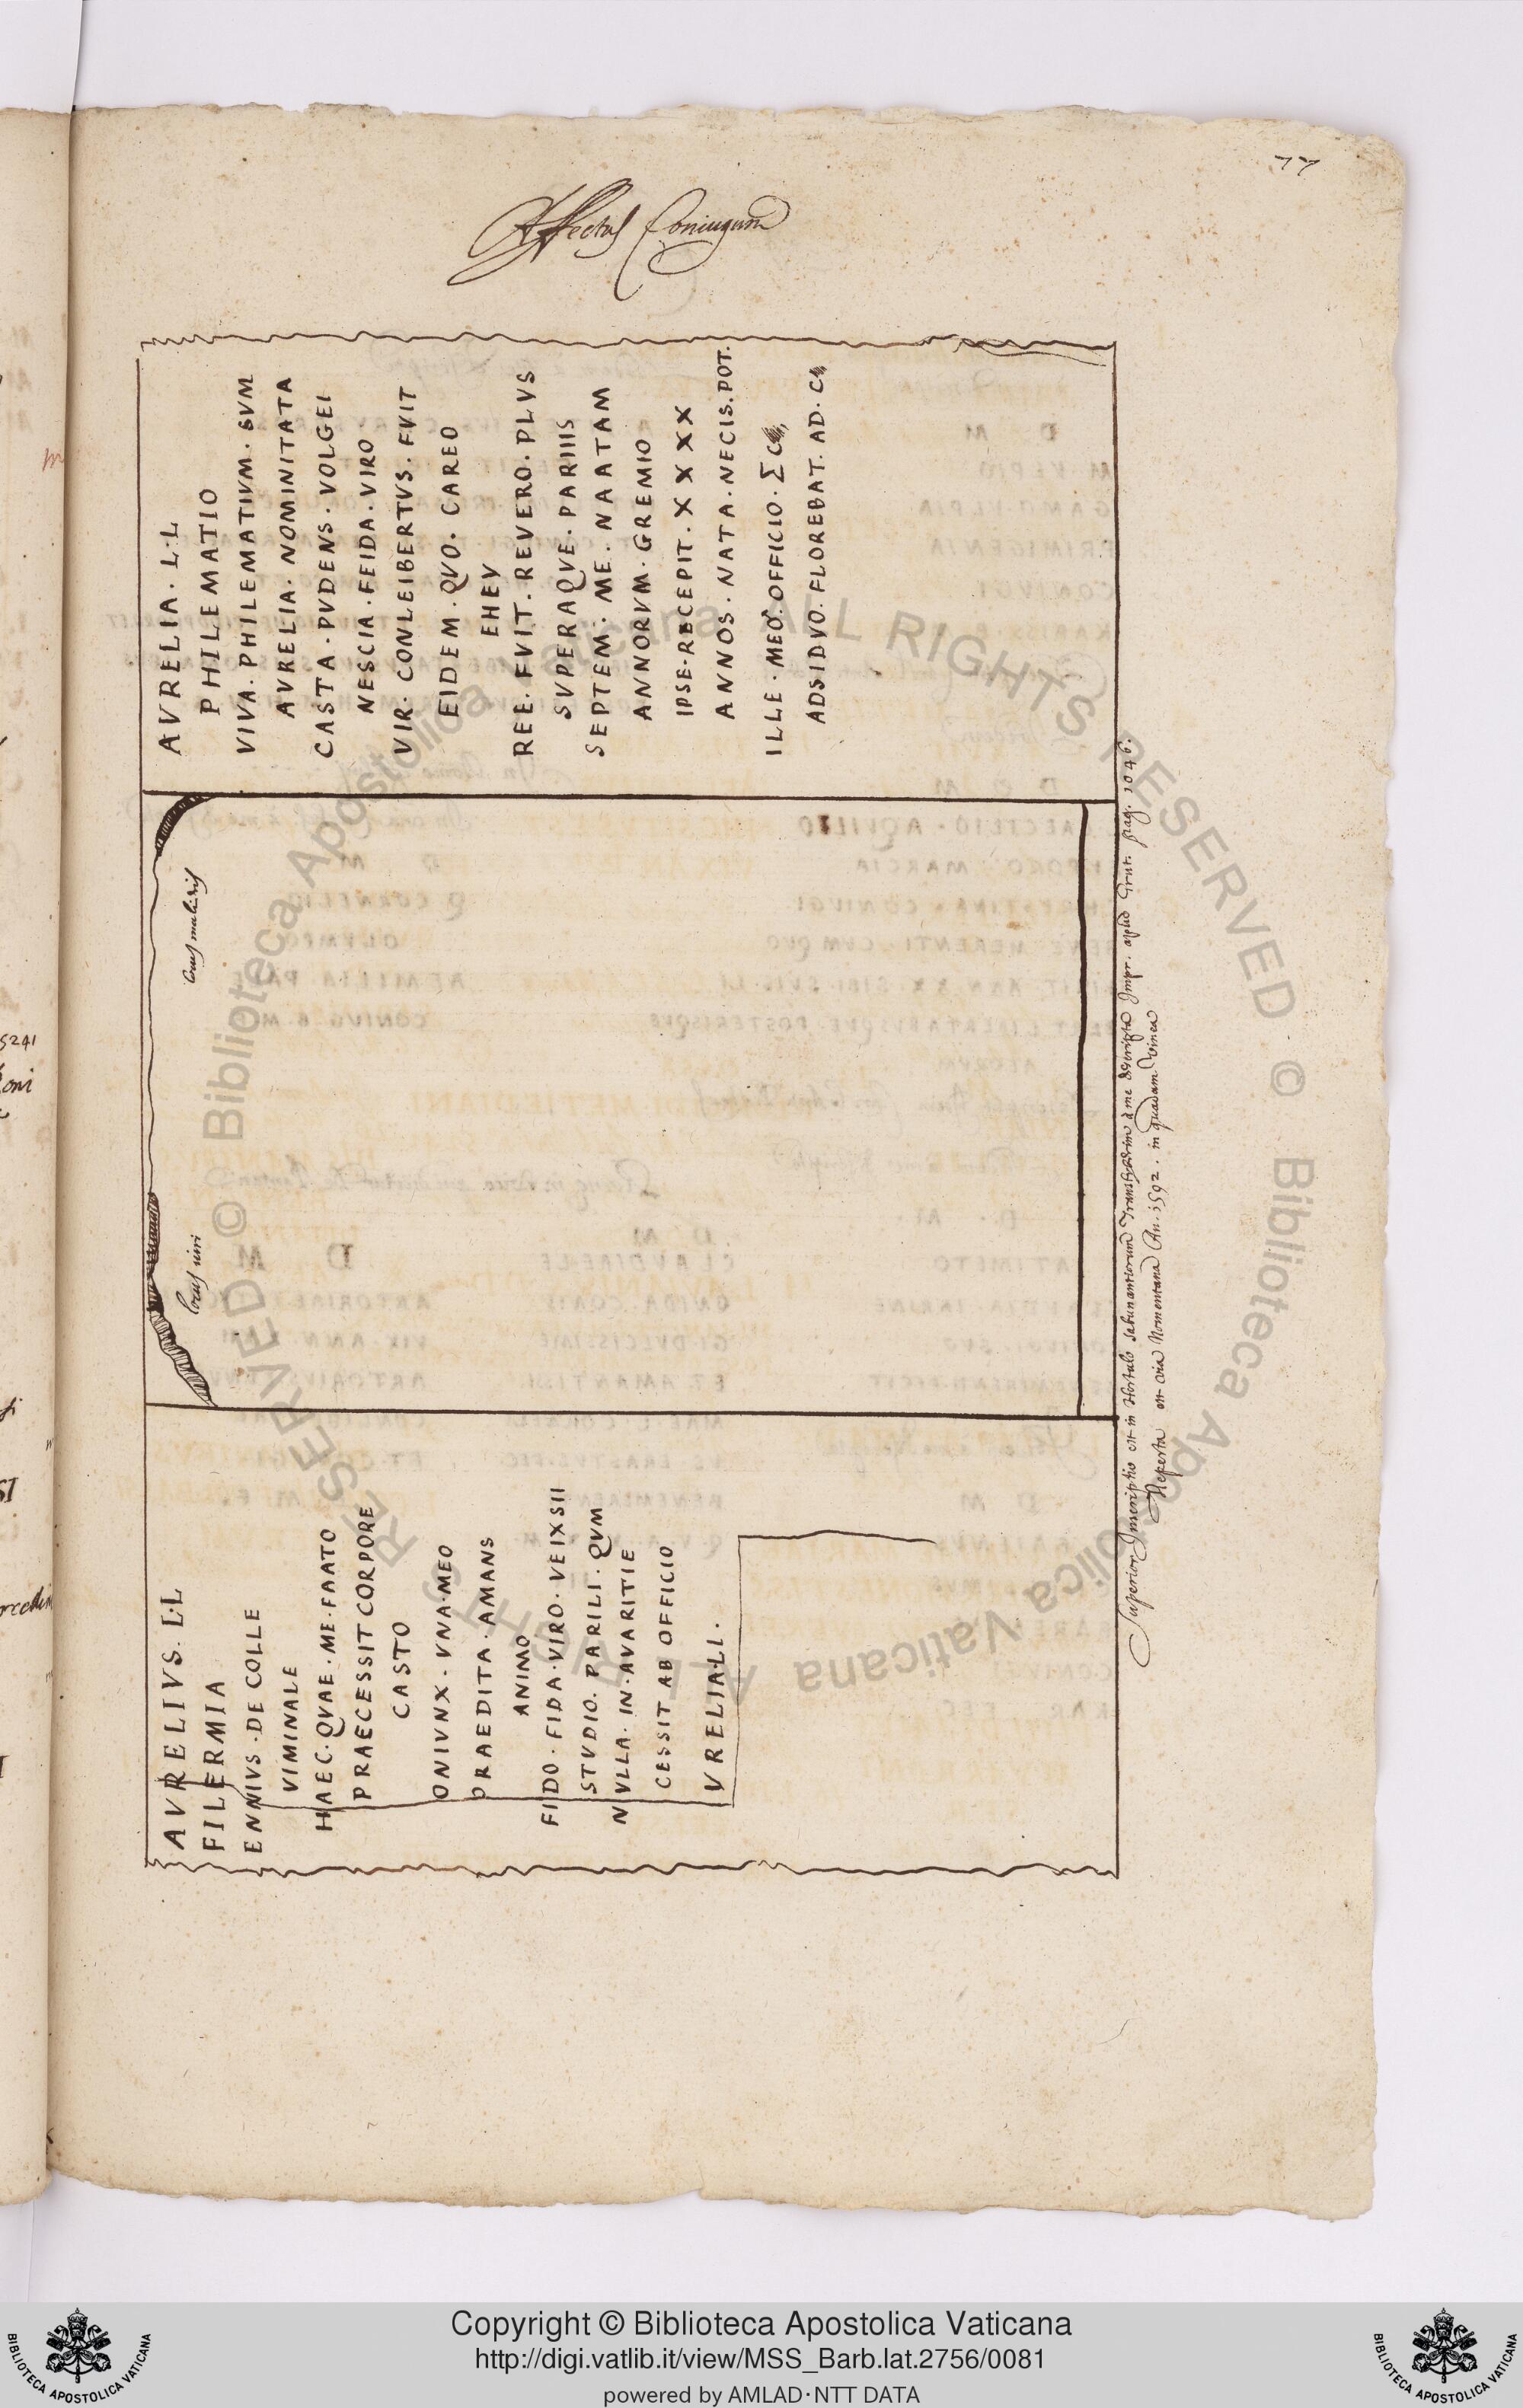 77
Affectus Coniugum
AVRELIVS. L·L
FILERMIA
ENNIVS·DE COLLE
VIMINALE
HAEC·QVAE·ME·FAATO
PRAECESSIT CORPORE
CASTO
ONIVNX·VNA·MEO
PRAEDITA·AMANS
ANIMO
FIDO·FIDA·VIRO·VEIXSII
STVDIO·PARILI·QVM
NVLLA·IN·AVARITIE
CESSIT AB OFFICIO
VRELIA·L·L·
locus uiri
locus mulieris
AVRELIA·L·L
PHILEMATIO
VIVA·PHILEMATIVM·SVM
AVRELIA·NOMINITATA
CASTA·PVDENS·VOLGEI
NESCIA·FEIDA·VIRO
VIR·CONLEIBERTVS·FVIT
EIDEM·QVO·CAREO
EHEV
REE·FVIT·REVERO·PLVS
SVPERAQVE·PARIIIS
SEPTEM·ME·NAATAM
ANNORVM·GREMIO
IPSE·RECEPIT·XXXX
ANNOS·NATA·NECIS·POT.
ILLE·MEO·OFFICIO·Σ
ADSIDVO·FLOREBAT·AD·
Superior Inscriptio est in Hortulo à me descripta Impr. apud Grut. pag. 1046.
Reperta est via Nomentana An. 1592. in quadam Vinea
5241
Copyright © Biblioteca Apostolica Vaticana
http://digi.vatlib.it/view/MSS_Barb.lat.2756/0081
powered by AMLAD·NTT DATA
BIBLIOTECA APOSTOLICA VATICANA
BIBLIOTECA APOSTOLICA VATICANA
© Biblioteca Apostolica Vaticana ALL RIGHTS RESERVED · © Biblioteca Apostolica Vaticana ALL RIGHTS RESERVED